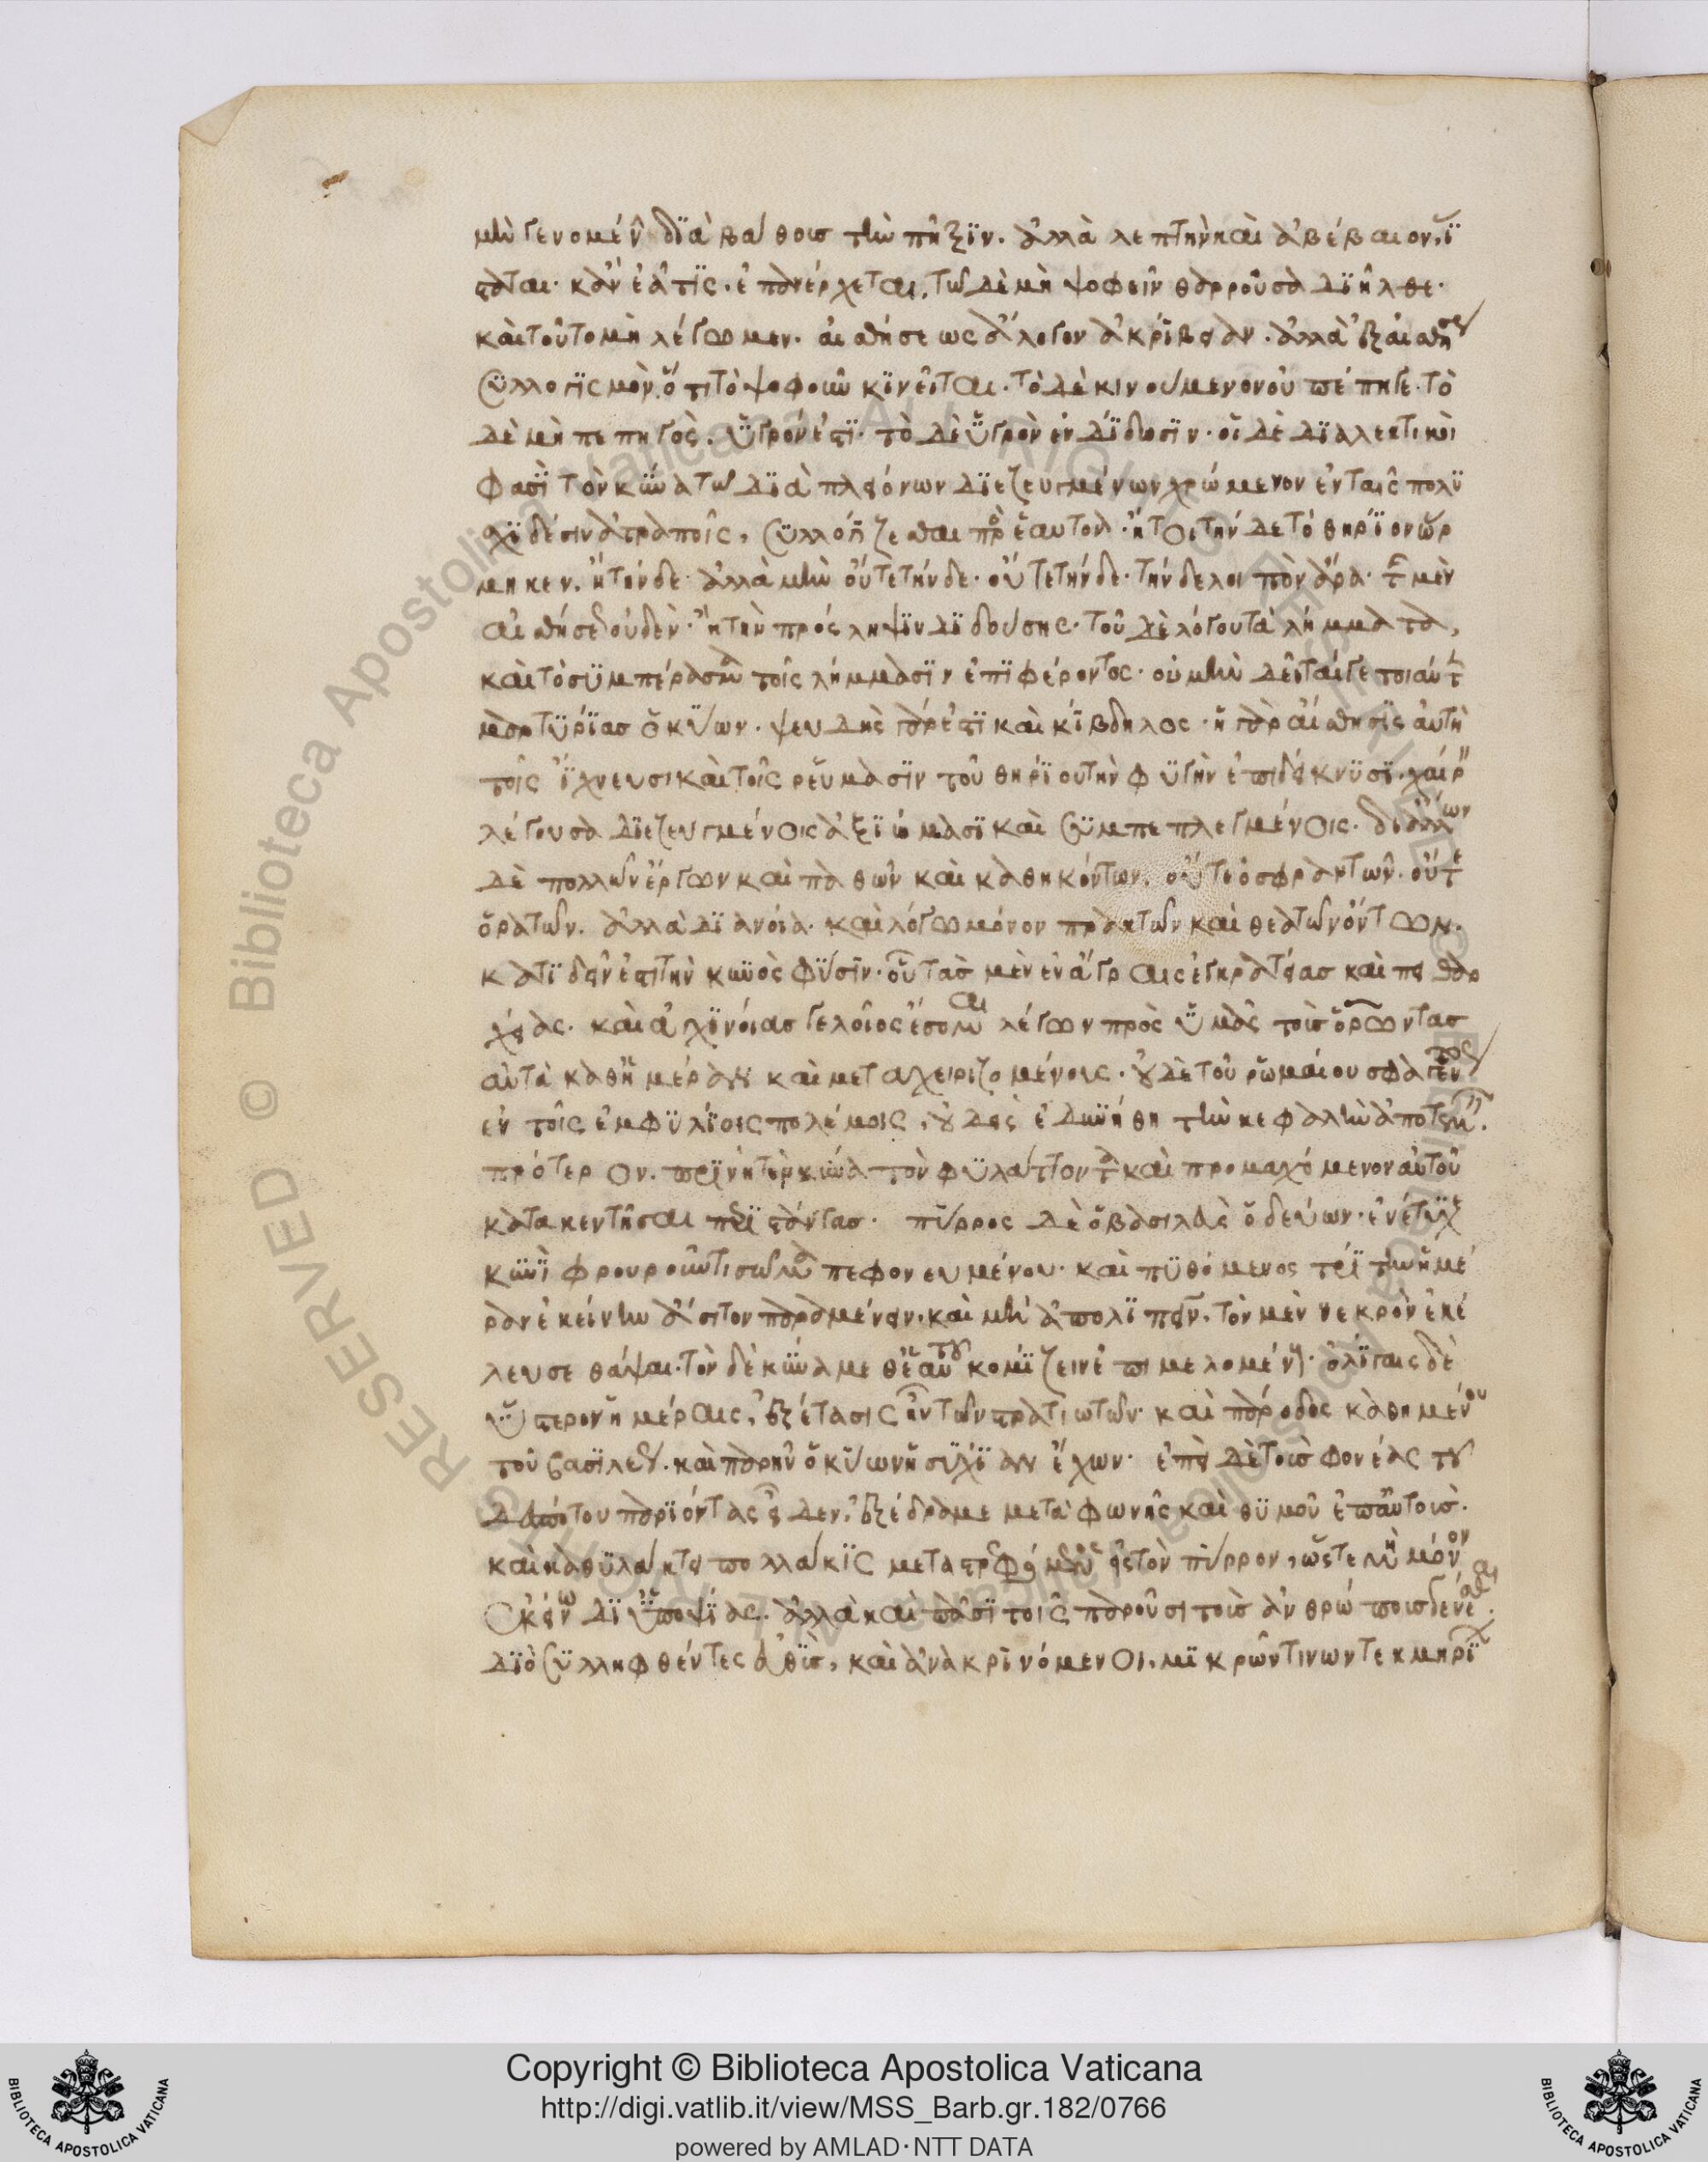 μὴν γενομένην διὰ βάθους τὴν πῆξιν. ἀλλὰ λεπτὴν καὶ ἀβέβαιον, ἵ
σταται. κἂν ἐᾷ τίς. ἐπανέρχεται. τῶ δὲ μὴ ψοφεῖν θαρροῦσα διῆλθε.
καὶ τοῦτο μὴ λέγωμεν. αἰσθήσεως ἄλογον ἀκρίβειαν. ἀλλὰ ἐξ αἰσθήσεως
συλλογισμὸν. ὅτι τὸ ψοφοῦν κινεῖται. τὸ δὲ κινούμενον οὐ πέπηγε. τὸ
δὲ μὴ πεπηγὸς. ὑγρόν ἐστι. τὸ δὲ ὑγρὸν ἐνδίδωσιν. οἱ δὲ διαλεκτικοὶ
φασὶ τὸν κύνα τῶ διὰ πλειόνων διεζευγμένων χρώμενον ἐν ταῖς πολυ
σχιδέσιν ἀτραποῖς, συλλογίζεσθαι πρὸς ἑαυτὸν. ἤτοι τήνδε τὸ θηρίον ὥρ
μηκεν. ἢ τήνδε. ἀλλὰ μὴν οὔτε τήνδε. οὔτε τήνδε. τήνδε λοιπὸν ἄρα. τῆς μὲν
αἰσθήσεως οὐδὲν. ἢ τὴν πρόσληψιν διδούσης. τοῦ δὲ λόγου τὰ λήμματα,
καὶ τὸ συμπέρασμα τοῖς λήμμασιν ἐπιφέροντος. οὐ μὴν δεῖταί γε τοιαύτης
μαρτυρίας ὁ κύων. ψευδὴς γάρ ἐστι καὶ κίβδηλος. ἡ γὰρ αἴσθησις αὐτὴ
τοῖς ἴχνευσι καὶ τοῖς ῥεύμασιν τοῦ θηρίου τὴν φυγὴν ἐπιδείκνυσι. χαίρειν
λέγουσα διεζευγμένοις ἀξιώμασι καὶ συμπεπλεγμένοις. δι' ἄλλων
δὲ πολλῶν ἔργων καὶ παθῶν καὶ καθηκόντων. οὔτε ὀσφραντῶν. οὔτε
ὁρατῶν. ἀλλὰ διανοία. καὶ λόγω μόνον πρακτῶν καὶ θεατῶν ὄντων.
κατιδεῖν ἐστι τὴν κυνὸς φύσιν. οὗ τὰς μὲν ἐν ἄγραις ἐγκρατείας καὶ πειθαρ
χείας. καὶ ἀγχινοίας γελοῖος ἔσομαι λέγων πρὸς ὑμᾶς τοὺς ὁρῶντας
αὐτὰ καθ' ἡμέραν καὶ μεταχειριζομένους. οὐδὲ τοῦ ῥωμαίου σφαγέντος
ἐν τοῖς ἐμφυλίοις πολέμοις, οὐδεὶς ἐδυνήθη τὴν κεφαλὴν ἀποτεμεῖν.
πρότερον. πρὶν ἢ τὸν κύνα τὸν φυλάττοντα καὶ προμαχόμενον αὐτοῦ
κατακεντῆσαι περιστάντας. πύρρος δὲ ὁ βασιλεὺς ὁδεύων. ἐνέτυχε
κυνὶ φρουροῦντι σῶμα πεφονευμένου. καὶ πυθόμενος τρίτην ἡμέ
ραν ἐκείνην ἄσιτον παραμένειν. καὶ μὴ ἀπολιπεῖν. τὸν μὲν νεκρὸν ἐκέ
λευσε θάψαι. τὸν δὲ κύνα μεθ' ἑαυτοῦ κομίζειν ἐπιμελομένους. ὀλίγαις δὲ
ὕστερον ἡμέραις, ἐξέτασις ἦν τῶν στρατιωτῶν. καὶ πάροδος καθημένου
τοῦ βασιλέως. καὶ παρῆν ὁ κύων ἡσυχίαν ἔχων. ἐπεὶ δὲ τοὺς φονέας τοῦ
δεσπότου παριόντας εἶδεν. ἐξέδραμε μετὰ φωνῆς καὶ θυμοῦ ἐπ' αὐτοὺς.
καὶ καθυλάκτει πολλάκις μεταστρεφόμενος εἰς τὸν πύρρον, ὥστε μὴ μόνον
ἐκείνω δι' ὑποψίας. ἀλλὰ καὶ πᾶσι τοῖς παροῦσι τοὺς ἀνθρώπους γενέσθαι.
διὸ συλληφθέντες εὐθὺς, καὶ ἀνακρινόμενοι. μικρῶν τινων τεκμηρίων
Copyright © Biblioteca Apostolica Vaticana
http://digi.vatlib.it/view/MSS_Barb.gr.182/0766
powered by AMLAD·NTT DATA